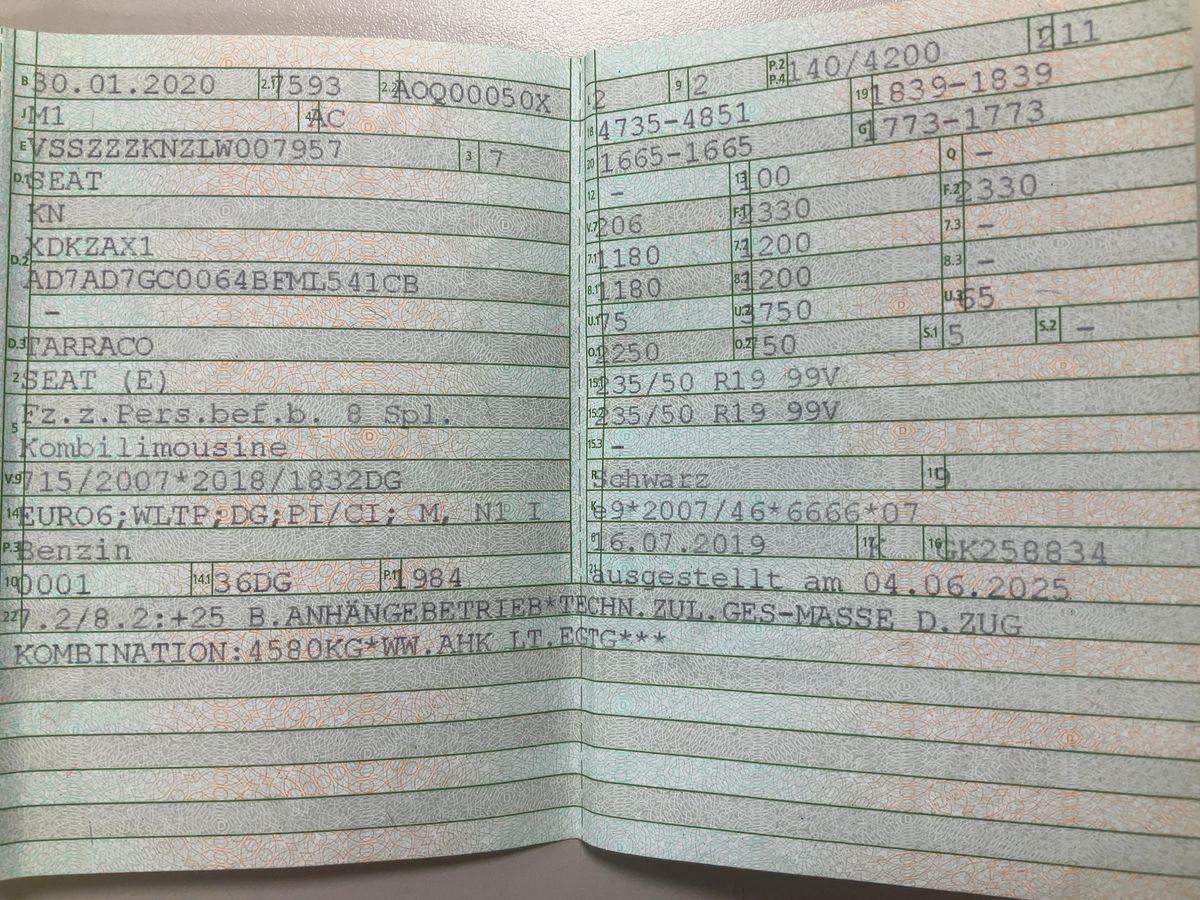 B 30.01.2020 2.1 7593 2.2 AOQ00050X
J M1 4 AC
E VSSZZZKNZLW007957 3 7
D.1 SEAT
KN
XDKZAX1
D.2 AD7AD7GC0064BFML541CB
–
D.3 TARRACO
2 SEAT (E)
Fz.z.Pers.bef.b. 8 Spl.
5 Kombilimousine
V.9 715/2007*2018/1832DG
14 EURO6;WLTP;DG;PI/CI; M, N1 I
P.3 Benzin
10 0001 14.1 36DG P.1 1984
L 2 9 2 P.2 P.4 140/4200 T 211
18 4735-4851 19 1839-1839
20 1665-1665 G 1773-1773
12 – 13 100 Q –
V.7 206 F.1 2330 F.2 2330
7.1 1180 7.2 1200 7.3 –
8.1 1180 8.2 1200 8.3 –
U.1 75 U.2 3750 U.3 65
O.1 2250 O.2 750 S.1 5 S.2 –
15.1 235/50 R19 99V
15.2 235/50 R19 99V
15.3 –
R Schwarz 11 9
K e9*2007/46*6666*07
6 16.07.2019 17 K 16 GK258834
21 ausgestellt am 04.06.2025
22 7.2/8.2:+25 B.ANHÄNGEBETRIEB*TECHN.ZUL.GES-MASSE D.ZUG
KOMBINATION:4580KG*WW.AHK LT.EGTG***